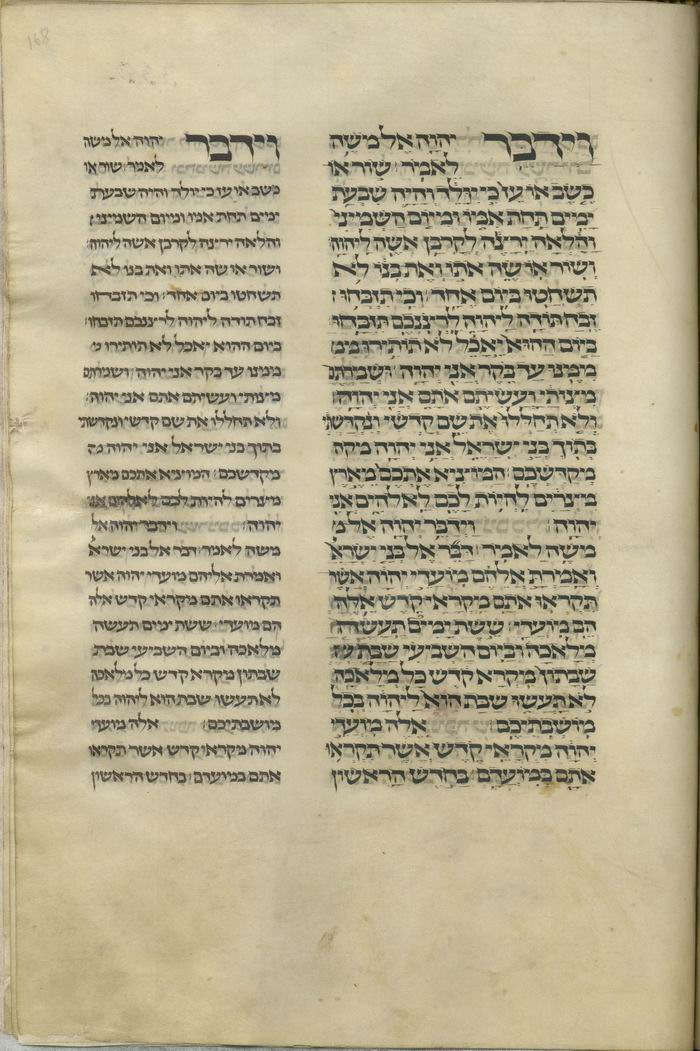 168
וידבר יהוה אל משה
לאמר שור או
כשב או עז כי יולד והיה שבעת
ימים תחת אמו ומיום השמיני
והלאה ירצה לקרבן אשה ליהוה
ושור או שה אתו ואת בנו לא
תשחטו ביום אחד וכי תזבחו
זבח תודה ליהוה לרצנכם תזבחו
ביום ההוא יאכל לא תותירו ממ
ממנו עד בקר אני יהוה ושמרתם
מצותי ועשיתם אתם אני יהוה
ולא תחללו את שם קדשי ונקדשתי
בתוך בני ישראל אני יהוה מקד
מקדשכם המוציא אתכם מארץ
מצרים להיות לכם לאלהים אני
יהוה וידבר יהוה אל מ
משה לאמר דבר אל בני ישרא
ואמרת אלהם מועדי יהוה אשר
תקראו אתם מקראי קדש אלה
הם מועדי ששת ימים תעשה
מלאכה וביום השביעי שבת
שבתון מקרא קדש כל מלאכה
לא תעשו שבת הוא ליהוה בכל
מושבתיכם אלה מועדי
יהוה מקראי קדש אשר תקראו
אתם במועדם בחדש הראשון
וידבר יהוה אל משה
לאמר שור או
כשב או עז כי יולד והיה שבעת
ימים תחת אמו ומיום השמיני
והלאה ירצה לקרבן אשה ליהוה
ושור או שה אתו ואת בנו לא
תשחטו ביום אחד וכי תזבחו
זבח תודה ליהוה לרצנכם תזבחו
ביום ההוא יאכל לא תותירו מ
ממנו עד בקר אני יהוה ושמרתם
מצותי ועשיתם אתם אני יהוה
ולא תחללו את שם קדשי ונקדשתי
בתוך בני ישראל אני יהוה מק
מקדשכם המוציא אתכם מארץ
מצרים להיות לכם לאלהים אני
יהוה וידבר יהוה אל
משה לאמר דבר אל בני ישרא
ואמרת אליהם מועדי יהוה אשר
תקראו אתם מקראי קדש אלה
הם מועדי ששת ימים תעשה
מלאכה וביום השביעי שבת
שבתון מקרא קדש כל מלאכה
לא תעשו שבת הוא ליהוה בכל
מושבתיכם אלה מועדי
יהוה מקראי קדש אשר תקראו
אתם במועדם בחדש הראשון